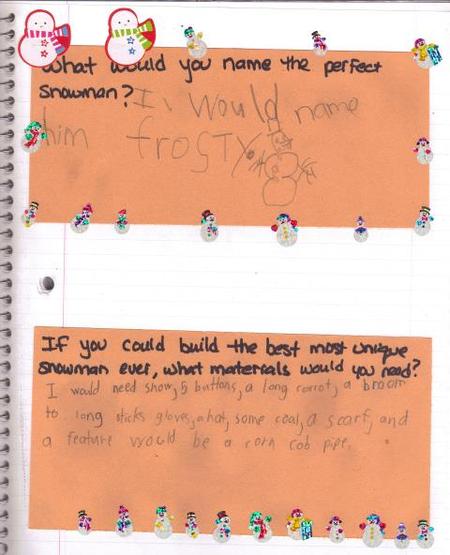 What would you name the perfect
Snowman? I would name
him frosty.
If you could build the best most unique
snowman ever, what materials would you need?
I would need snow, 5 buttons, a long carrot, a broom
to long sticks gloves, a hat, some coal, a scarf, and
a feature would be a corn cob pipe.